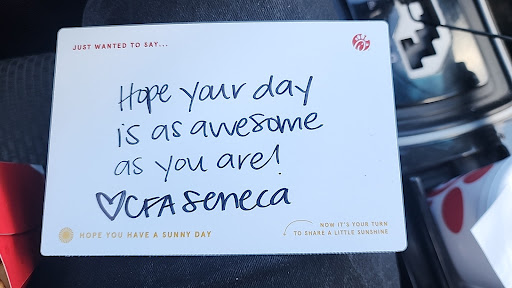 JUST WANTED TO SAY...
Hope your day
is as awesome
as you are!
♡CFA Seneca
HOPE YOU HAVE A SUNNY DAY
NOW IT'S YOUR TURN
TO SHARE A LITTLE SUNSHINE